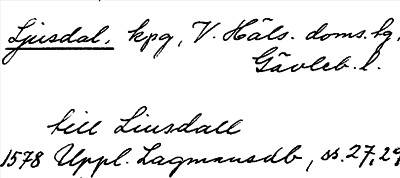 Ljusdal, kpg, V. Häls. doms.hg,
Gävleb. l.
till Liusdall
1578 Uppl. Lagmansdb, ss. 27, 29